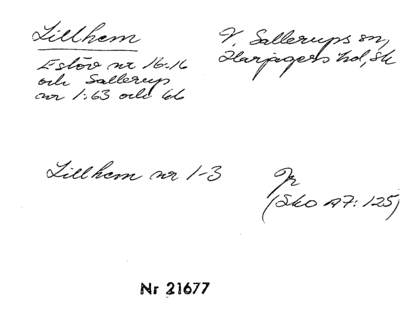 Lillhem
V. Sallerups sn,
Harjagers hd, Sk
Eslöv nr 16:16
och Sallerup
nr 1:63 och 66
Lillhem nr 1-3
Jr
(Sko A7: 125)
Nr 21677